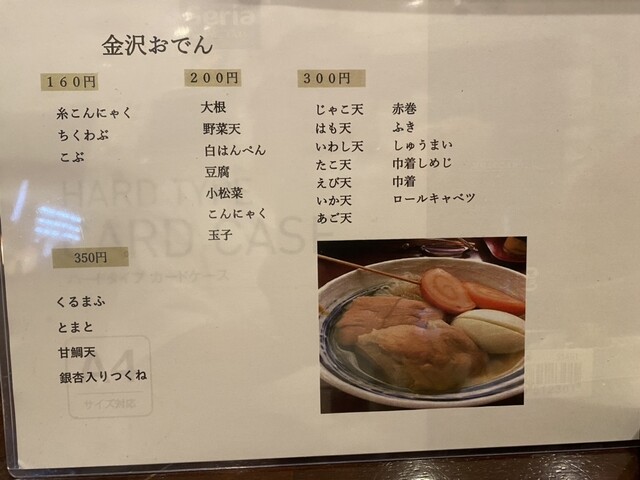 金沢おでん
160円
糸こんにゃく
ちくわぶ
こぶ
200円
大根
野菜天
白はんぺん
豆腐
小松菜
こんにゃく
玉子
300円
じゃこ天
はも天
いわし天
たこ天
えび天
いか天
あご天
赤巻
ふき
しゅうまい
巾着しめじ
巾着
ロールキャベツ
350円
くるまふ
とまと
甘鯛天
銀杏入りつくね
Seria
HARD TYPE
HARD CASE
カードケース
A4
サイズ対応